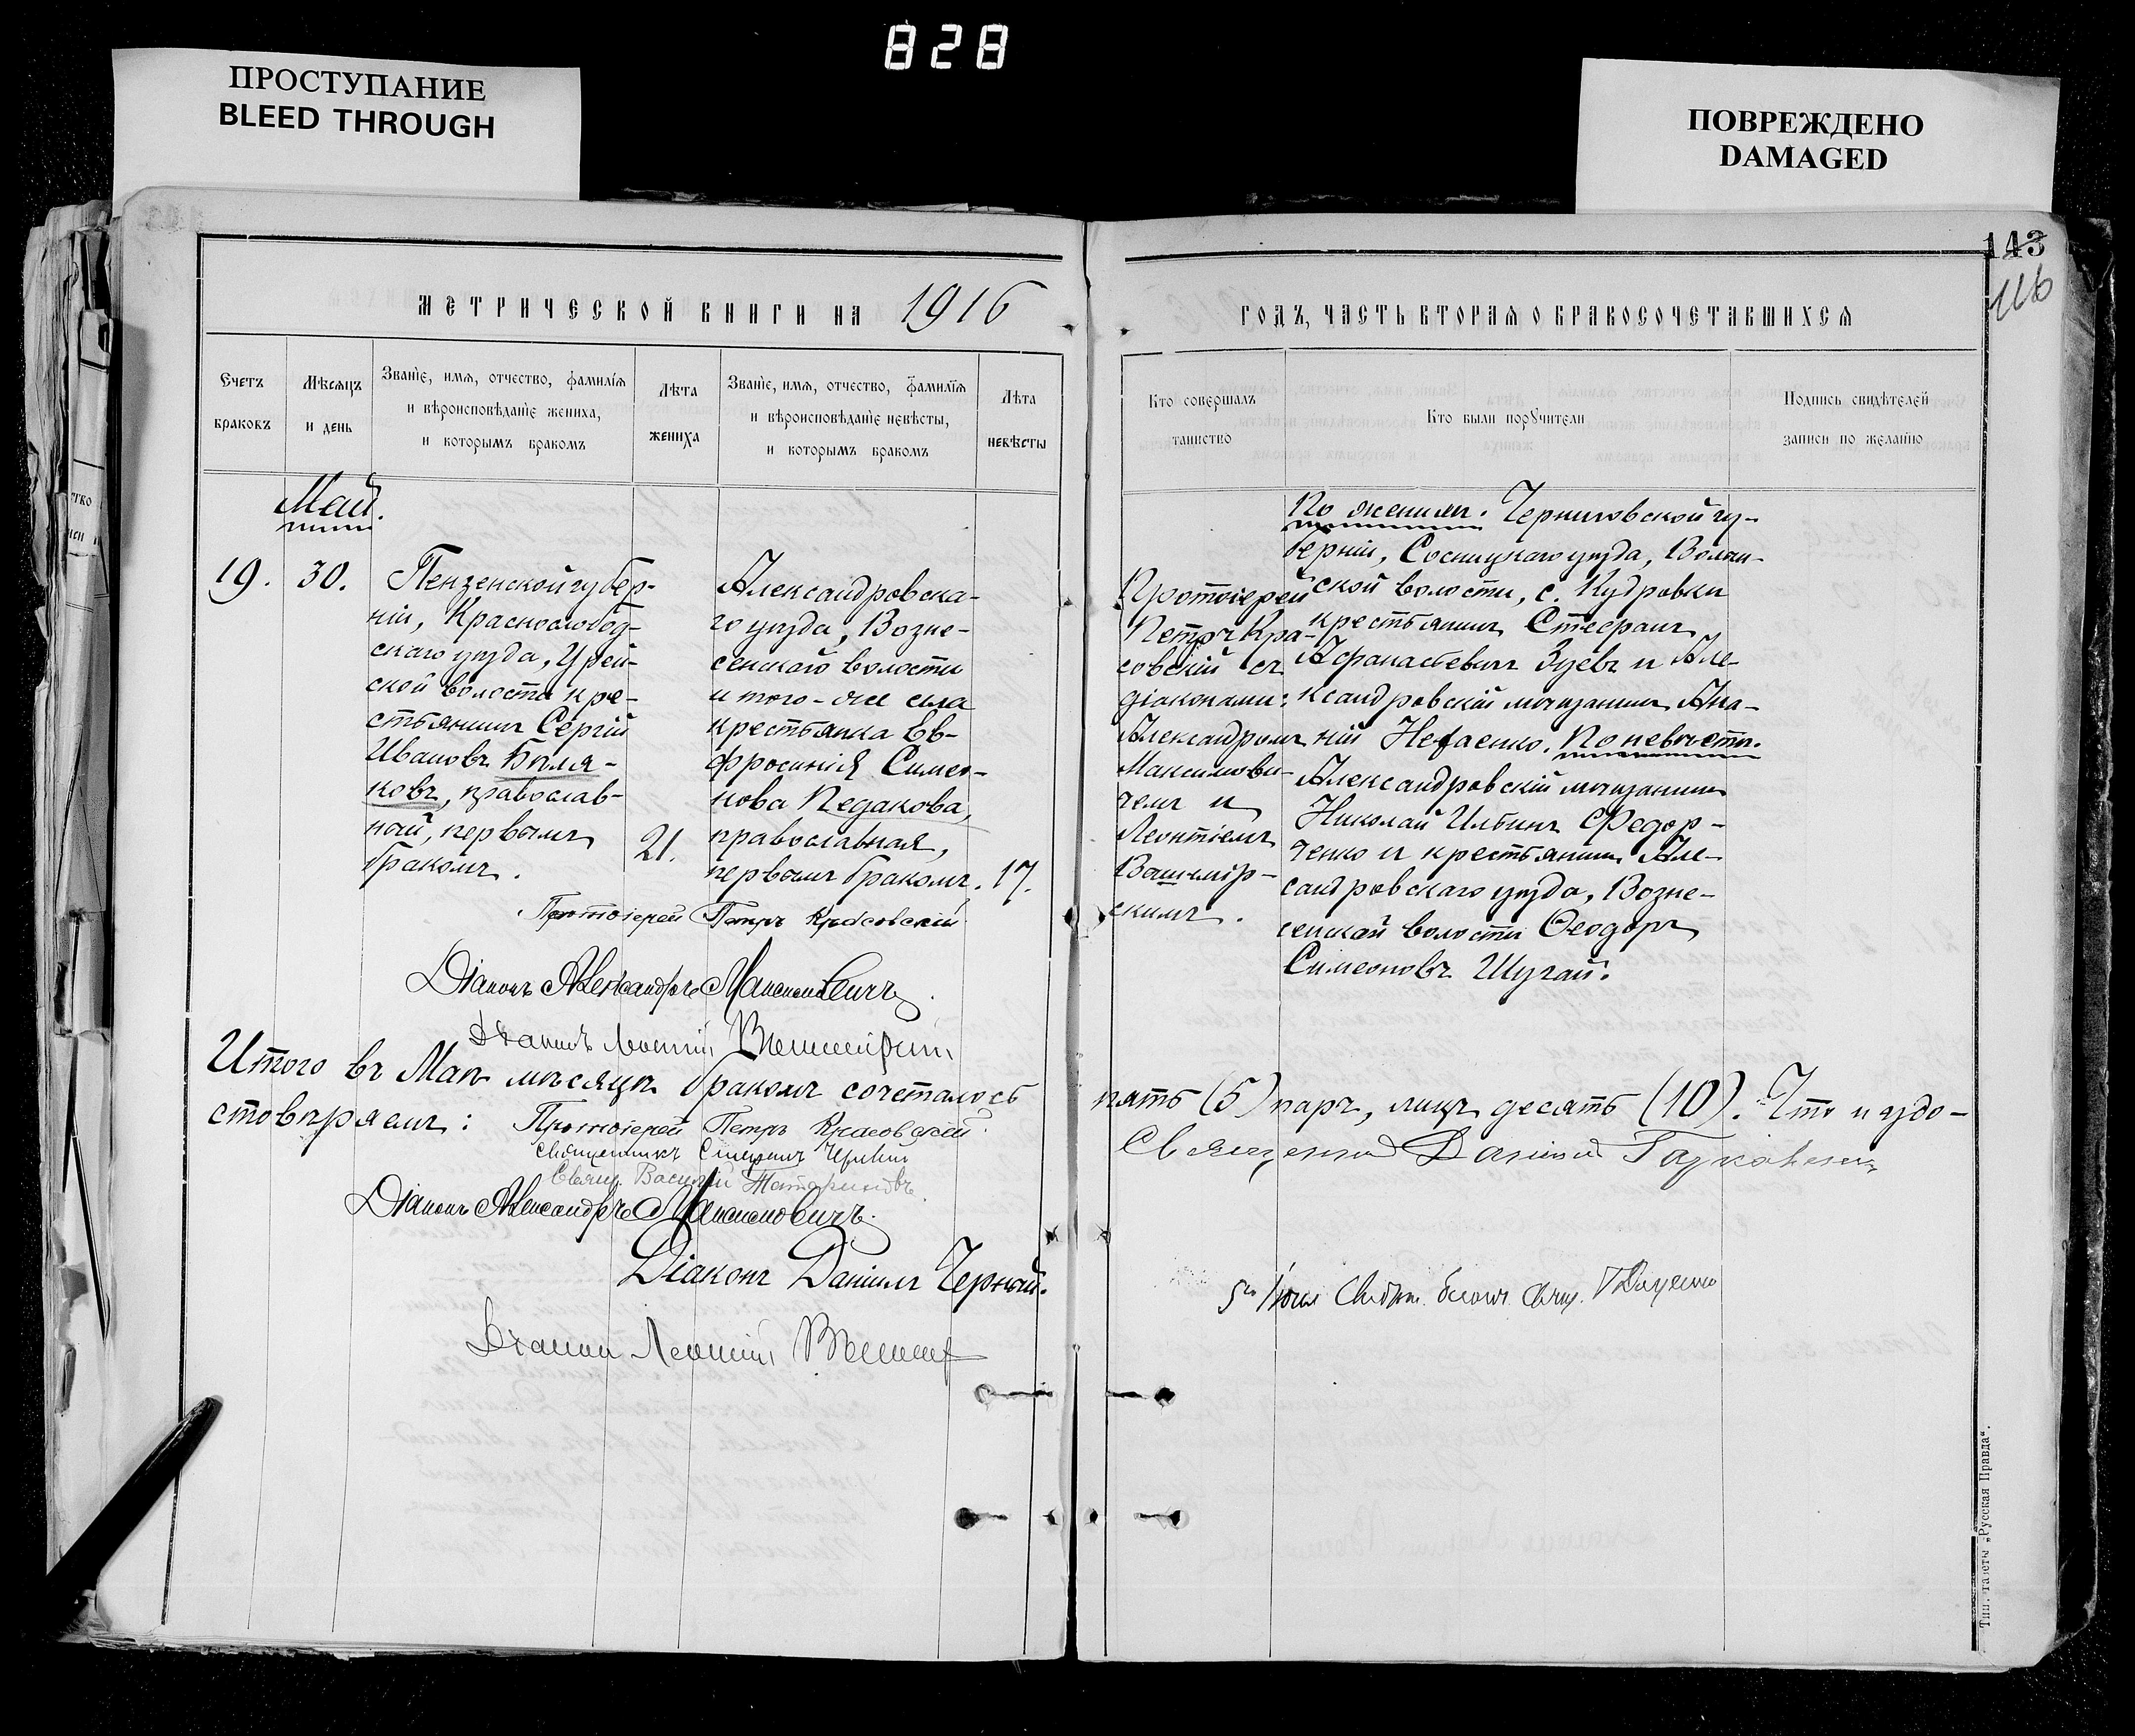 828
ПРОСТУПАНИЕ
BLEED THROUGH
ПОВРЕЖДЕНО
DAMAGED
143
116
МЕТРИЧЕСКОЙ КНИГИ НА 1916
ГОДЪ, ЧАСТЬ ВТОРАЯ О БРАКОСОЧЕТАВШИХСЯ
Счетъ
браковъ
Мѣсяцъ
и день
Званіе, имя, отчество, фамилія
и вѣроисповѣданіе жениха,
и которымъ бракомъ
Лѣта
жениха
Званіе, имя, отчество, фамилія
и вѣроисповѣданіе невѣсты,
и которымъ бракомъ
Лѣта
невѣсты
Кто совершалъ
таинство
Кто были поручители
Подпись свидѣтелей
записи по желанію
Май.
19.
30.
Пензенской губер-
ніи, Краснослобод-
скаго уѣзда, Урей-
ской волости кре-
стьянинъ Сергій
Ивановъ Бѣля-
ковъ, православ-
ный, первымъ
бракомъ.
21.
Александровска-
го уѣзда, Возне-
сенскаго волости
и того-же села
крестьянка Ев-
фросинія Симео-
нова Педакова,
православная,
первымъ бракомъ.
17.
Протоіерей
Петръ Кра-
совскій съ
діаконами:
Александромъ
Максимови-
чемъ и
Леонтіемъ
Вашемір-
скимъ.
По женихѣ. Черниговской гу-
берніи, Сосницкаго уѣзда, Волын-
ской волости, с. Кудровки
крестьянинъ Стефанъ
Афанасьевичъ Зуевъ и Але-
ксандровскій мѣщанинъ Ана-
ній Нефаенко. По невѣстѣ.
Александровскій мѣщанинъ
Николай Ильинъ Федор-
ченко и крестьянинъ Але-
сандровскаго уѣзда, Возне-
сенской волости Ѳеодоръ
Симеоновъ Шугай.
Протоіерей Петръ Красовскій
Діаконъ Александръ Максимовичъ.
Діаконъ Леонтій
Итого въ Маѣ мѣсяцѣ бракомъ сочеталось
пять (5) паръ, лицъ десять (10). Что и удо-
стовѣряемъ: Протоіерей Петръ Красовскій.
Священникъ Черный
Свящ. Василій Татариновъ.
Священник Даниил
Діаконъ Александръ Максимовичъ.
Діаконъ Даніилъ Черный.
Діаконъ Леонтій
Тип. газеты „Русская Правда“.